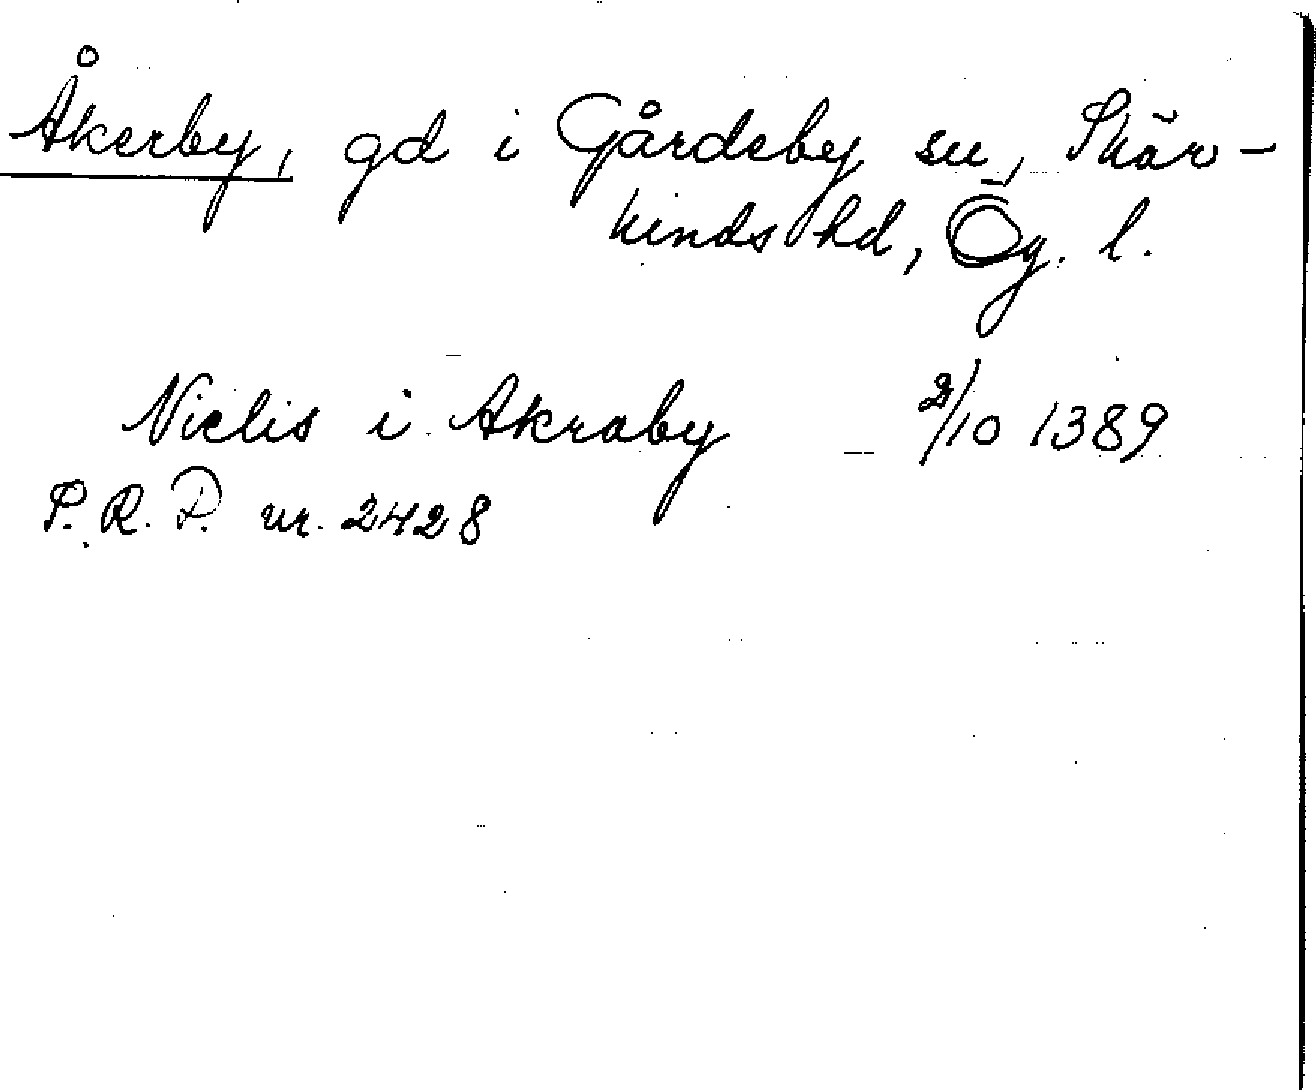 Åkerby, gd i Gårdeby sn, Skär-
kinds hd, Ög. l.
Niclis i Akraby 2/10 1389
P. R. P. nr. 2428